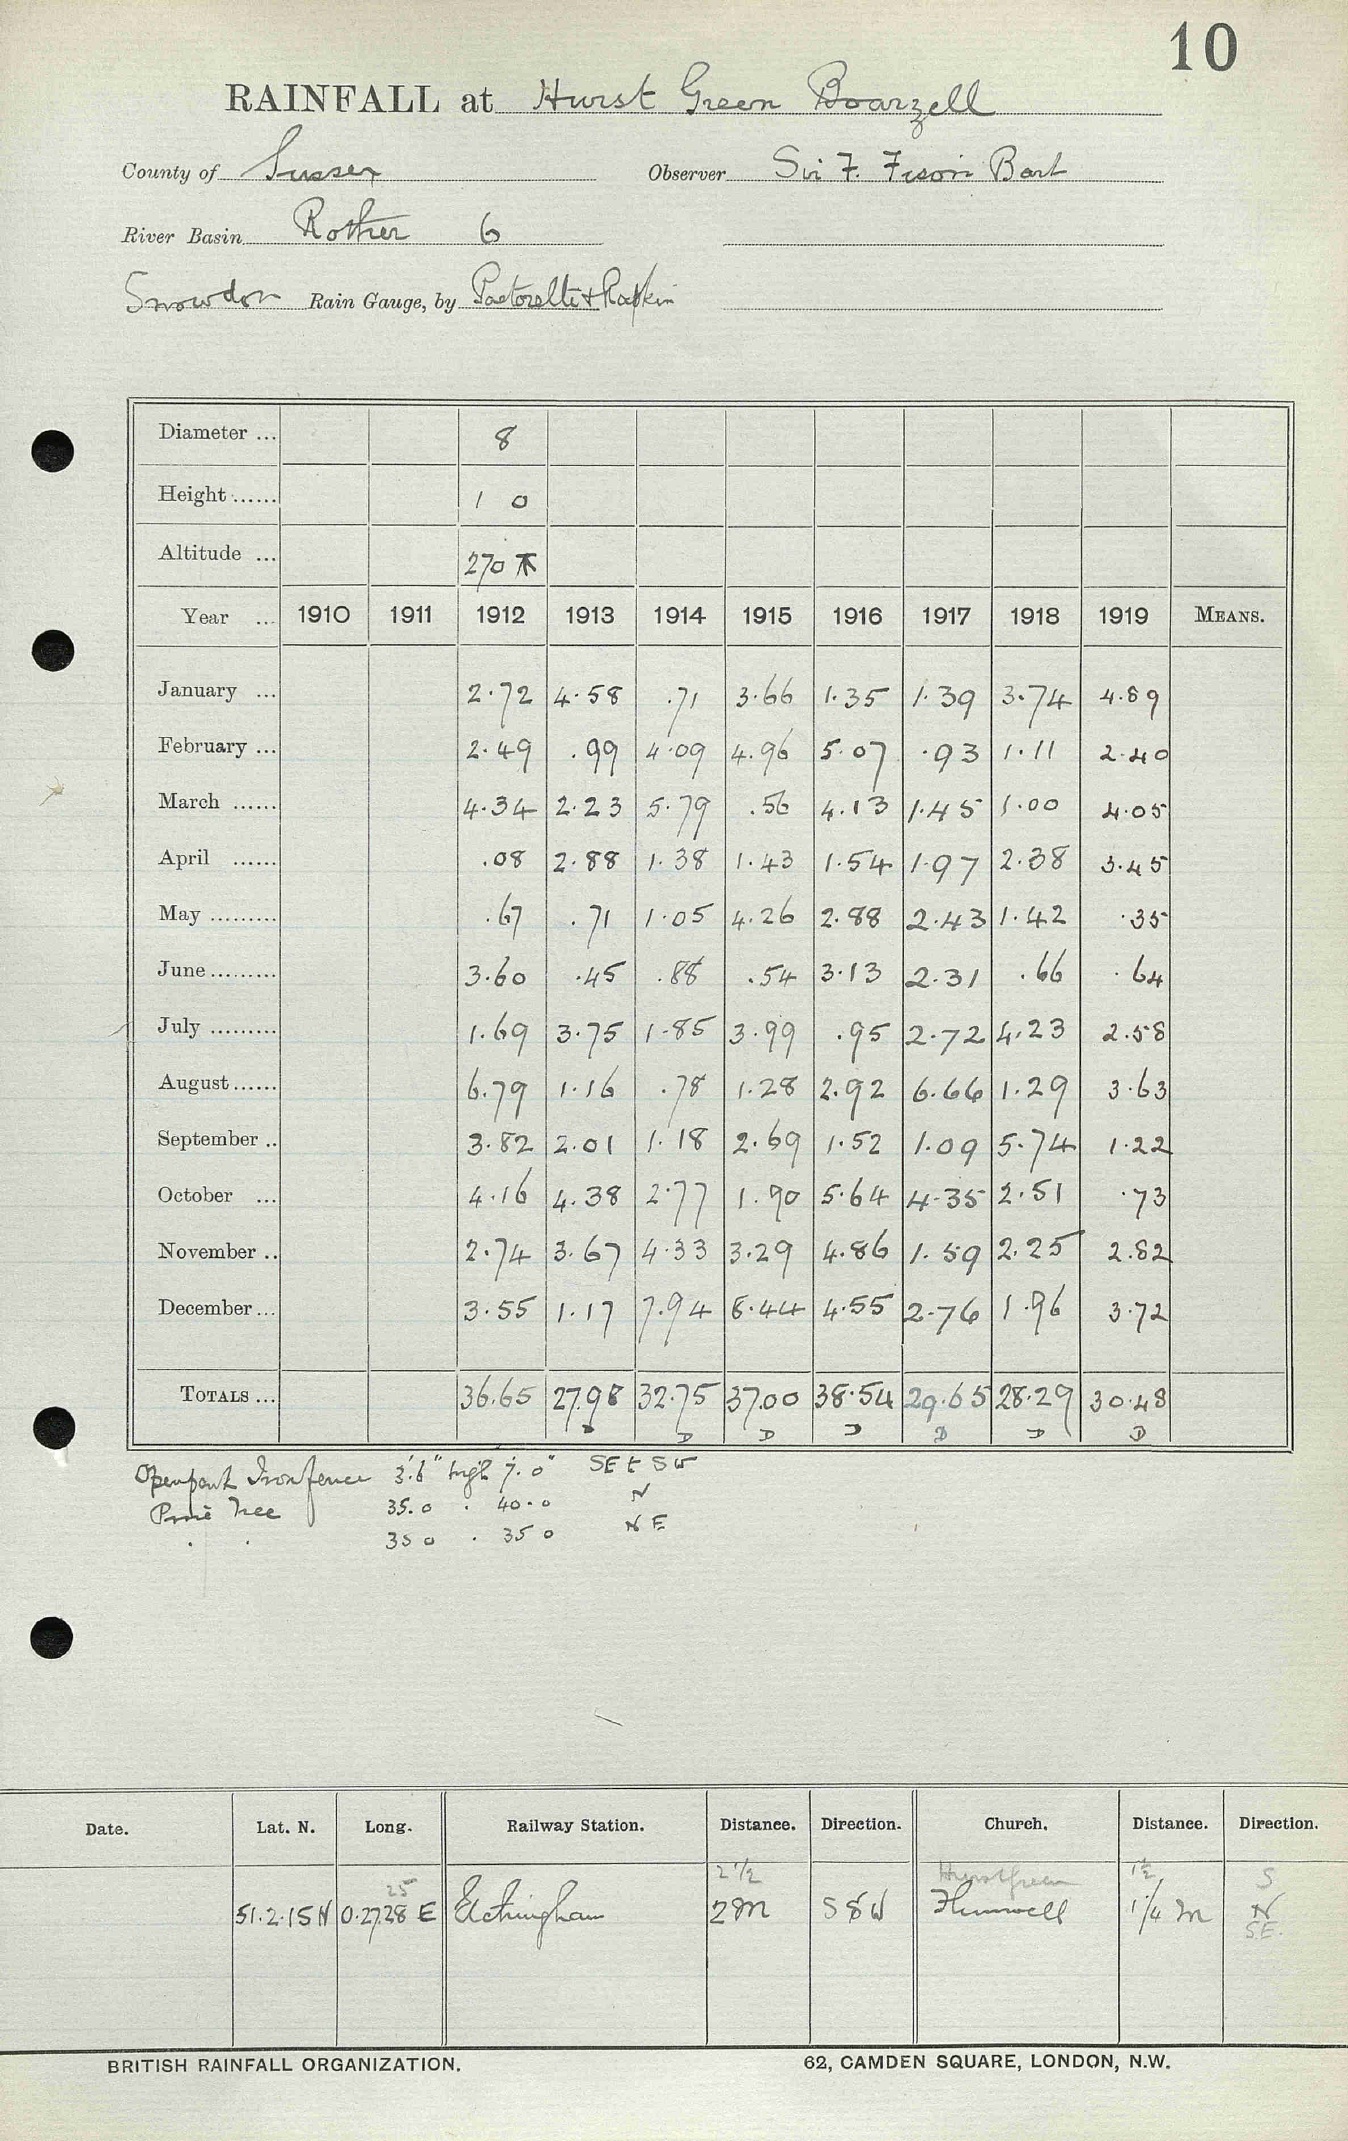 10
RAINFALL at Hurst Green Boarzell
County of Sussex Observer Sir F. Fison Bart
River Basin Rother 6
Snowdon Rain Gauge, by Pastorelli & Rapkin
Diameter ... 8
Height ...... 1 0
Altitude ... 270
Year ... 1910 1911 1912 1913 1914 1915 1916 1917 1918 1919 MEANS.
January ... 2.72 4.58 .71 3.66 1.35 1.39 3.74 4.89
February ... 2.49 .99 4.09 4.96 5.07 .93 1.11 2.40
March ...... 4.34 2.23 5.79 .56 4.13 1.45 1.00 4.05
April ...... .08 2.88 1.38 1.43 1.54 1.97 2.38 3.45
May ......... .67 .71 1.05 4.26 2.88 2.43 1.42 .35
June ......... 3.60 .45 .88 .54 3.13 2.31 .66 .64
July ......... 1.69 3.75 1.85 3.99 .95 2.72 4.23 2.58
August ...... 6.79 1.16 .78 1.28 2.92 6.66 1.29 3.63
September .. 3.82 2.01 1.18 2.69 1.52 1.09 5.74 1.22
October ... 4.16 4.38 2.77 1.90 5.64 4.35 2.51 .73
November .. 2.74 3.67 4.33 3.29 4.86 1.59 2.25 2.82
December ... 3.55 1.17 7.94 8.44 4.55 2.76 1.96 3.72
TOTALS ... 36.65 27.98 32.75 37.00 38.54 29.65 28.29 30.48
D D D D D D D
Iron fence 3'.6" high 7.0" SE & SW
Pine Tree 35.0 . 40.0 N
. . 35 0 . 35 0 N E
Date. Lat. N. Long. Railway Station. Distance. Direction. Church. Distance. Direction.
25 2 1/2 Hurst Green 1 1/2 S
51.2.15 N 0.27.28 E Etchingham 2 M S & W Flimwell 1 1/4 m N
S.E.
BRITISH RAINFALL ORGANIZATION. 62, CAMDEN SQUARE, LONDON, N.W.